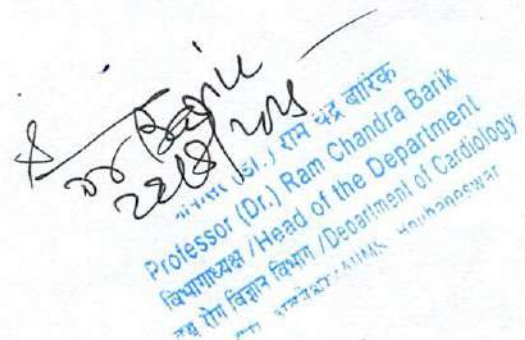 Dr Barik
(डॉ.) राम चंद्र बारिक
Professor (Dr.) Ram Chandra Barik
विभागाध्यक्ष / Head of the Department
हृदय रोग विज्ञान विभाग / Department of Cardiology
AIIMS, Bhubaneswar